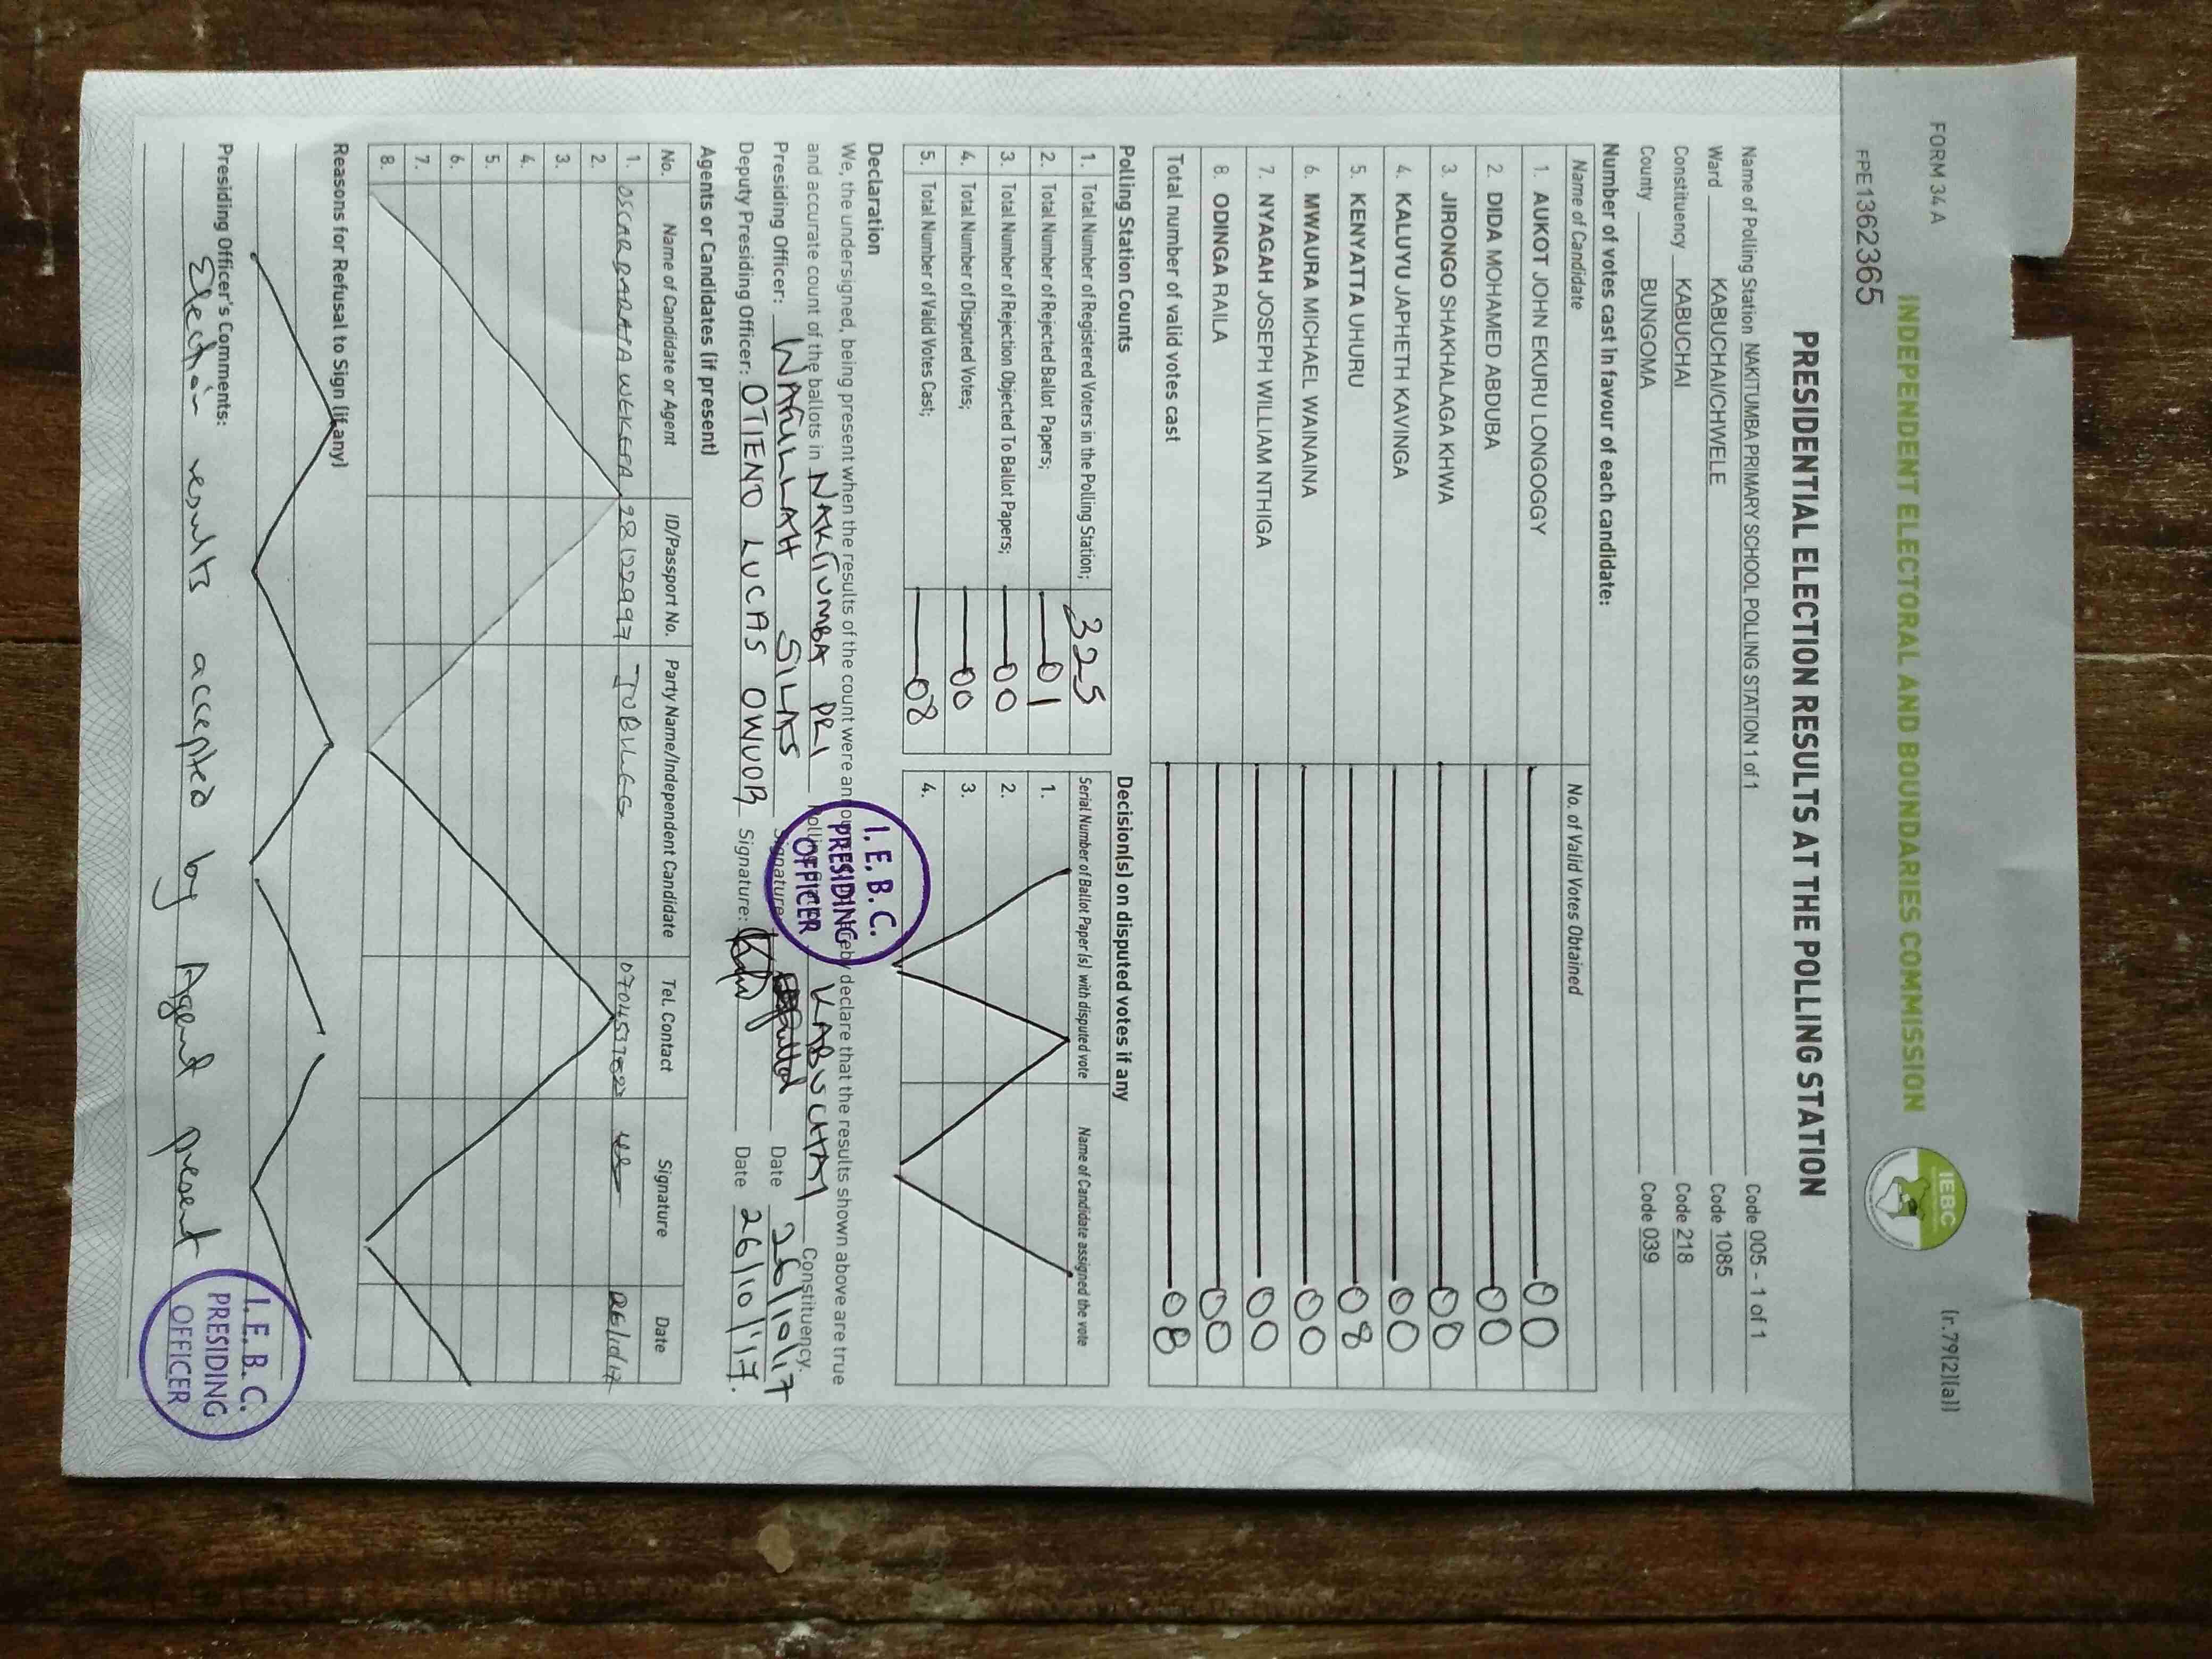 FORM 34 A
(r.79(2)(a))
INDEPENDENT ELECTORAL AND BOUNDARIES COMMISSION
IEBC
FPE1362365
PRESIDENTIAL ELECTION RESULTS AT THE POLLING STATION
Name of Polling Station NAKITUMBA PRIMARY SCHOOL POLLING STATION 1 of 1 Code 005 - 1 of 1
Ward KABUCHAI/CHWELE Code 1085
Constituency KABUCHAI Code 218
County BUNGOMA Code 039
Number of votes cast in favour of each candidate:
Name of Candidate No. of Valid Votes Obtained
1. AUKOT JOHN EKURU LONGOGGY 00
2. DIDA MOHAMED ABDUBA 00
3. JIRONGO SHAKHALAGA KHWA 00
4. KALUYU JAPHETH KAVINGA 00
5. KENYATTA UHURU 08
6. MWAURA MICHAEL WAINAINA 00
7. NYAGAH JOSEPH WILLIAM NTHIGA 00
8. ODINGA RAILA 00
Total number of valid votes cast 08
Polling Station Counts
1. Total Number of Registered Voters in the Polling Station; 325
2. Total Number of Rejected Ballot Papers; 01
3. Total Number of Rejection Objected To Ballot Papers; 00
4. Total Number of Disputed Votes; 00
5. Total Number of Valid Votes Cast; 08
Decision(s) on disputed votes if any
Serial Number of Ballot Paper(s) with disputed vote Name of Candidate assigned the vote
1.
2.
3.
4.
Declaration
We, the undersigned, being present when the results of the count were announced, do hereby declare that the results shown above are true
and accurate count of the ballots in NAKITUMBA PRI Polling KABUCHAI Constituency.
Presiding Officer: SILAS Signature: Date 26/10/17
Deputy Presiding Officer: OTIENO LUCAS OWUOR Signature: Date 26/10/17.
I. E. B. C.
PRESIDING
OFFICER
Agents or Candidates (if present)
No. Name of Candidate or Agent ID/Passport No. Party Name/Independent Candidate Tel. Contact Signature Date
1. OSCAR 26/10/17
2.
3.
4.
5.
6.
7.
8.
Reasons for Refusal to Sign (if any)
Presiding Officer's Comments:
Election results accepted by Agent present
I. E. B. C.
PRESIDING
OFFICER